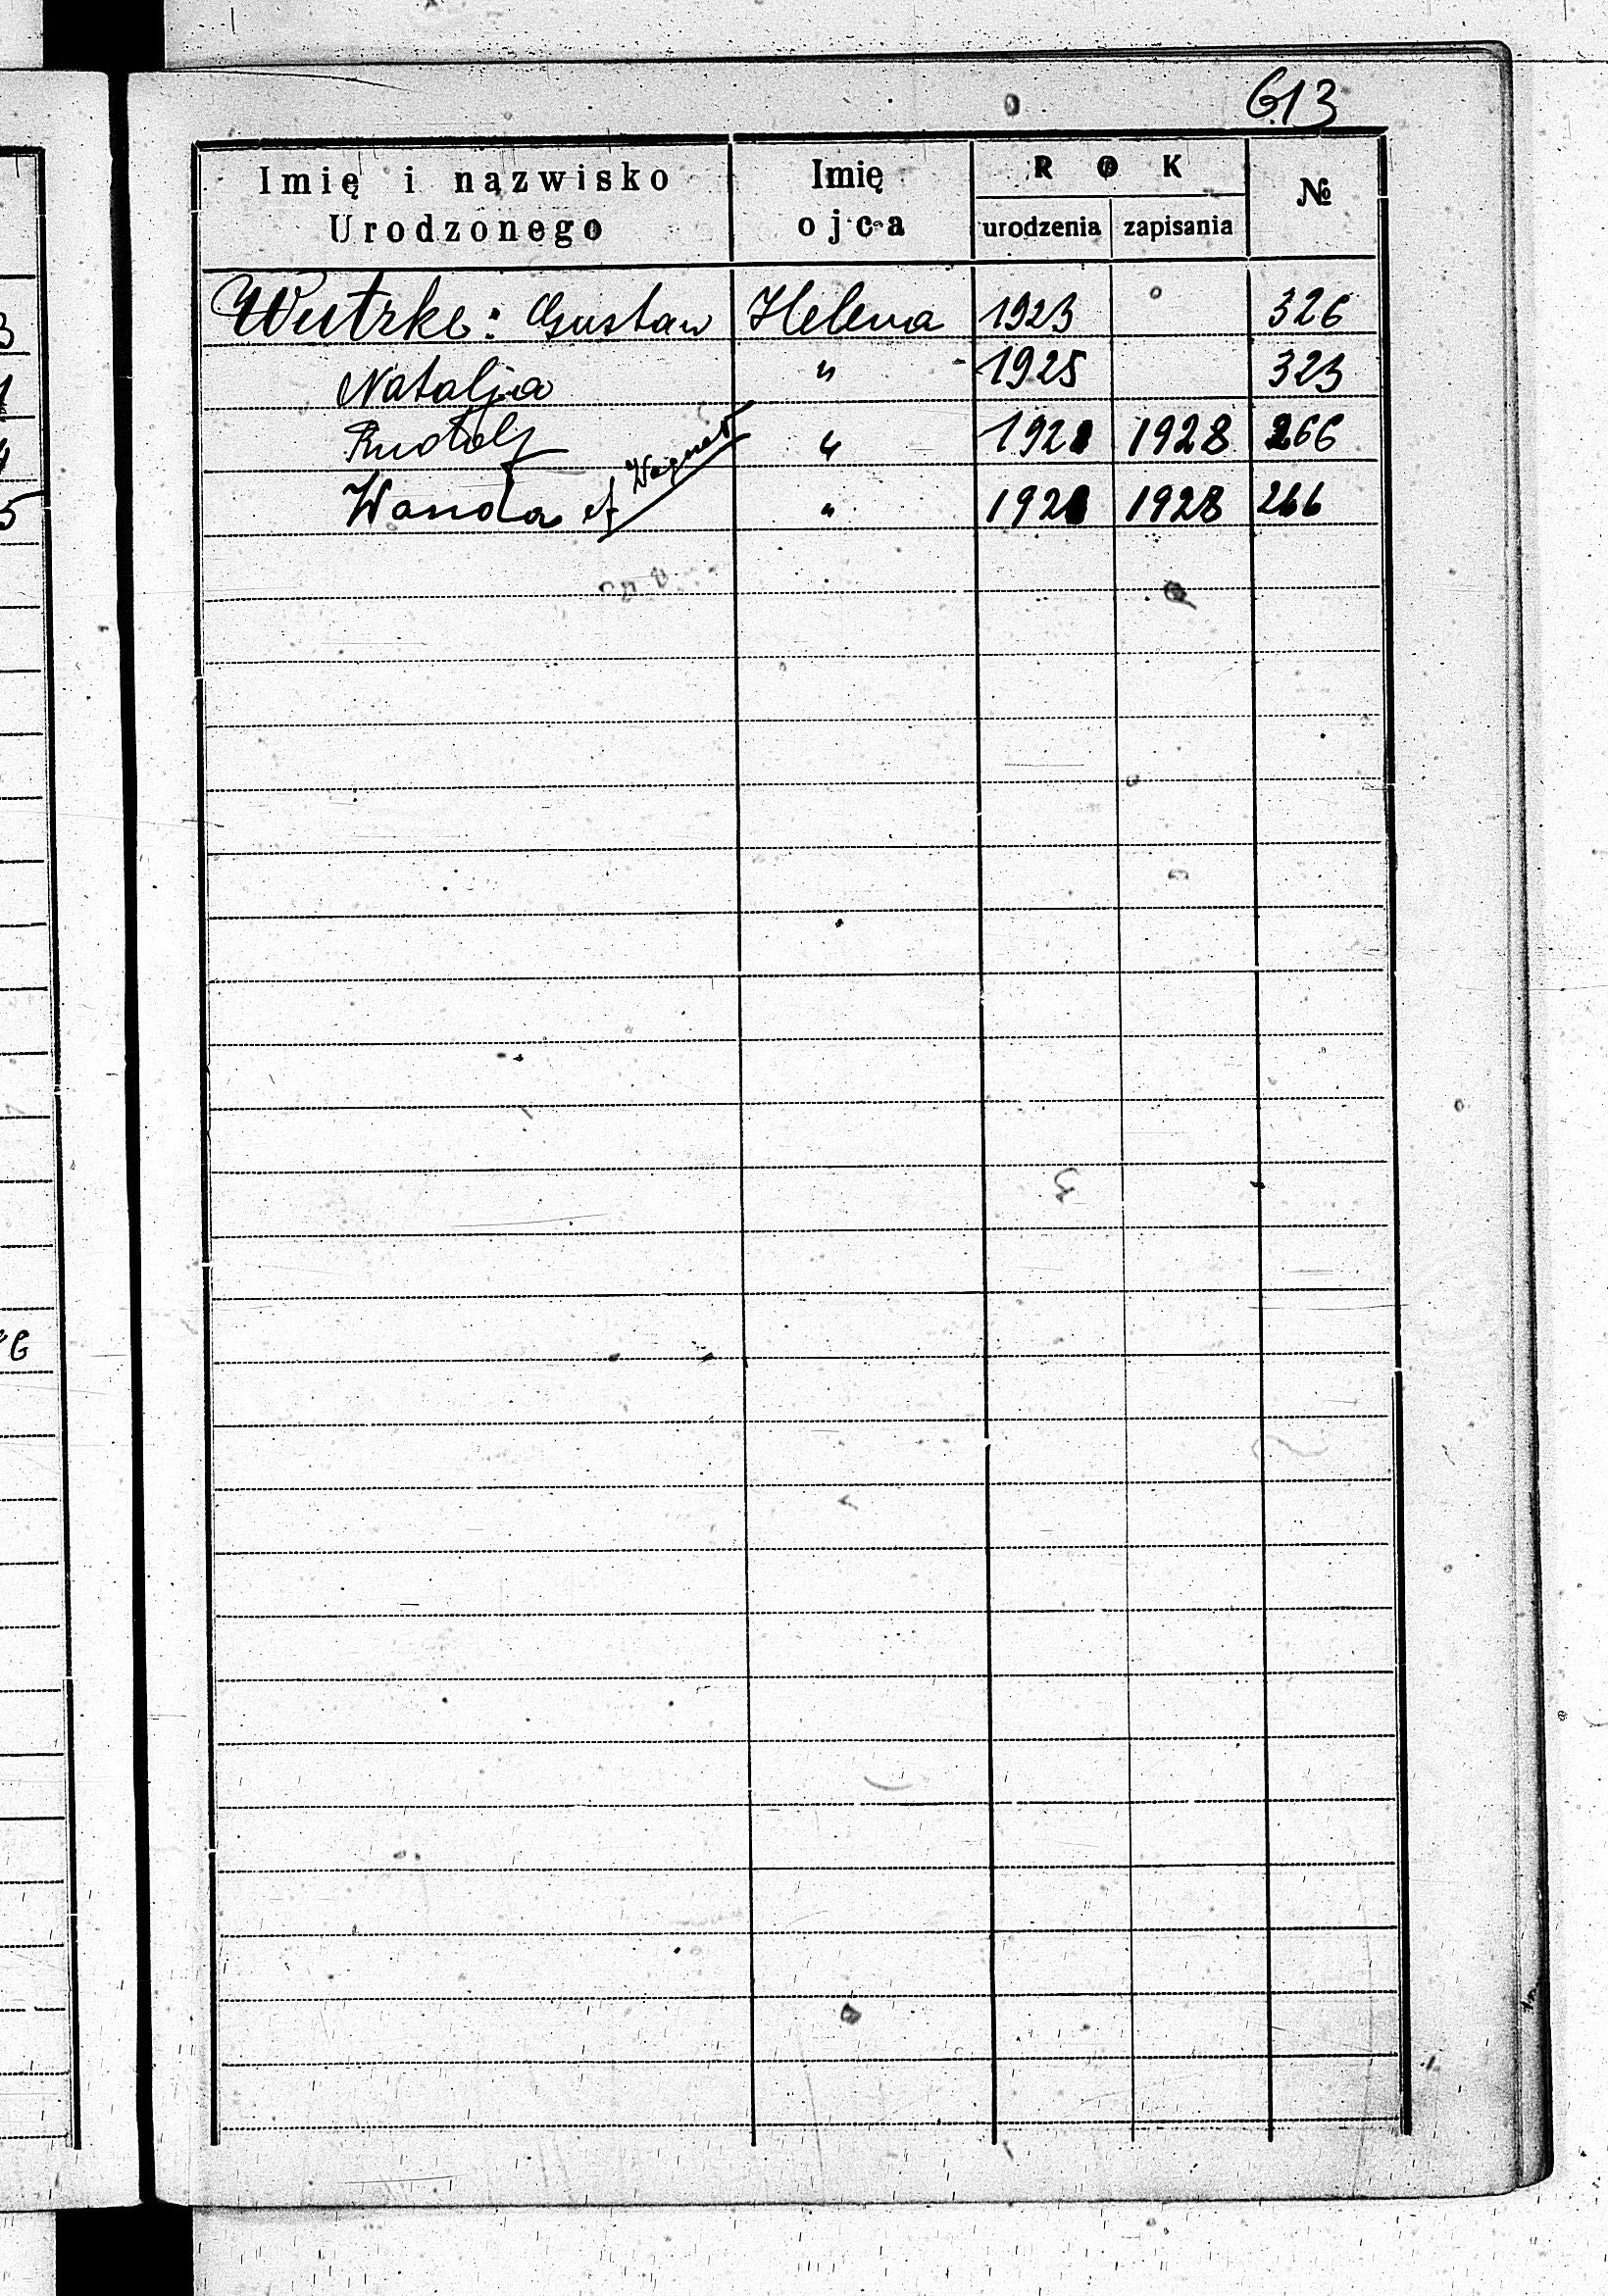 613
Imię i nazwisko Urodzonego Imię ojca ROK urodzenia zapisania №
Wutzke: Gustaw Helena 1923 326
Natalja " 1925 323
Rudolf " 1921 1928 266
Wanda cf Wagner " 1928 266